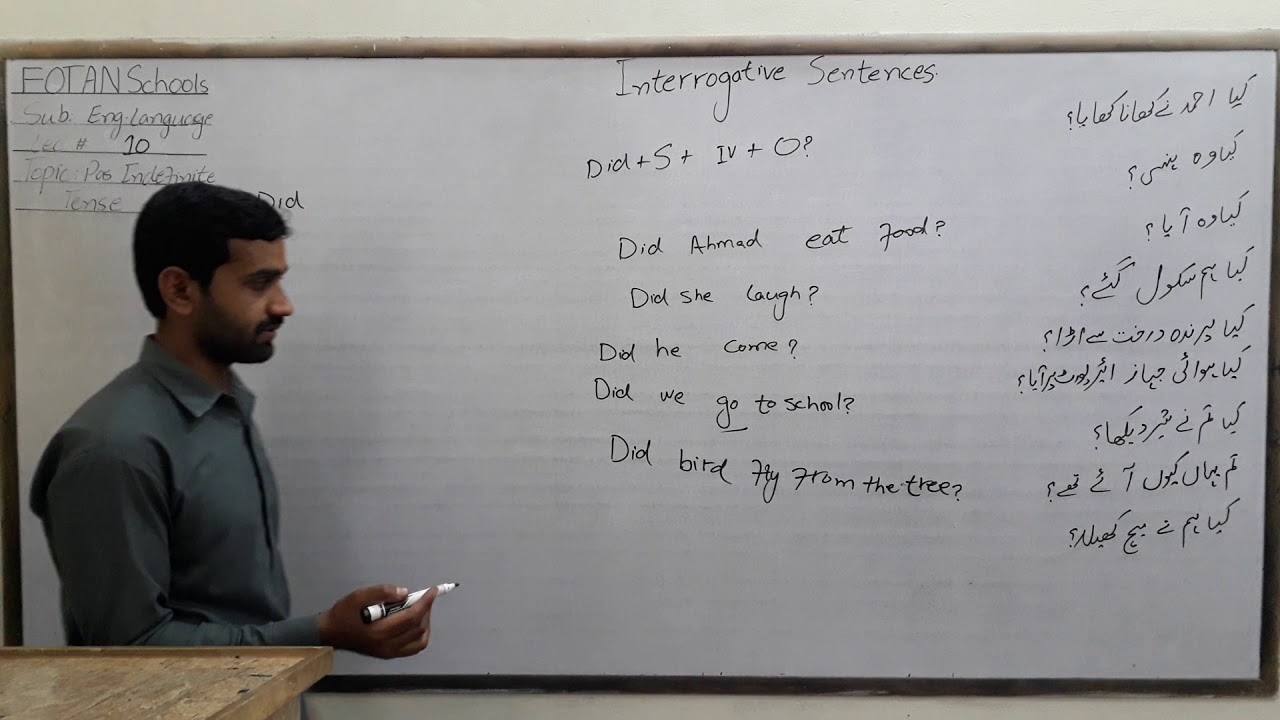 FOTAN Schools
Sub: Eng.Language
Lec # 10
Topic: Pas Indefinite
Tense
Did
Interrogative Sentences.
Did + S + IV + O?
Did Ahmad eat food?
Did she laugh?
Did he come?
Did we go to school?
Did bird fly from the tree?
کیا احمد نے کھانا کھایا؟
کیا وہ ہنسی؟
کیا وہ آیا؟
کیا ہم سکول گئے؟
کیا پرندہ درخت سے اڑا؟
کیا ہوائی جہاز ائیرپورٹ پر آیا؟
کیا تم نے شیر دیکھا؟
تم یہاں کیوں آئے تھے؟
کیا ہم نے میچ کھیلا؟